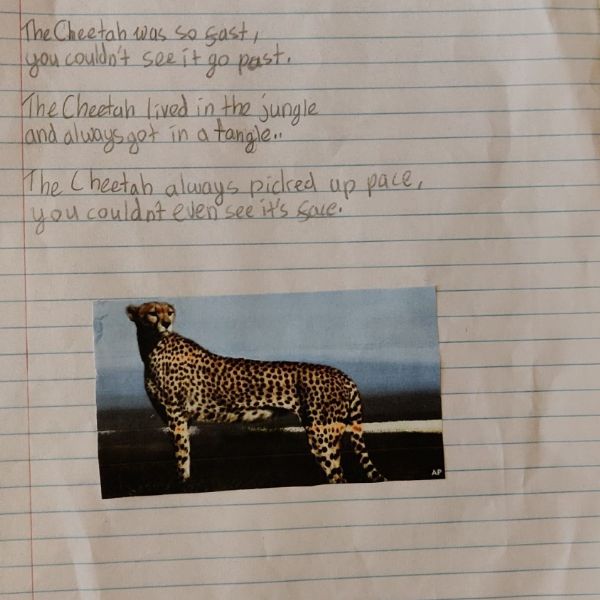 The Cheetah was so fast,
you couldn't see it go past.
The Cheetah lived in the jungle
and always got in a tangle..
The Cheetah always picked up pace,
you couldn't even see it's face.
AP